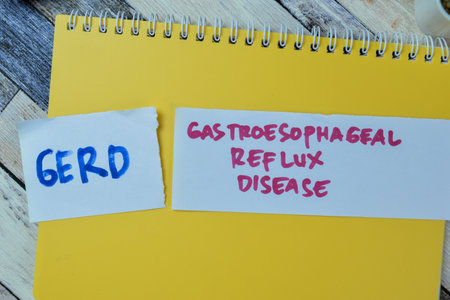 GERD
GASTROESOPHAGEAL
REFLUX
DISEASE